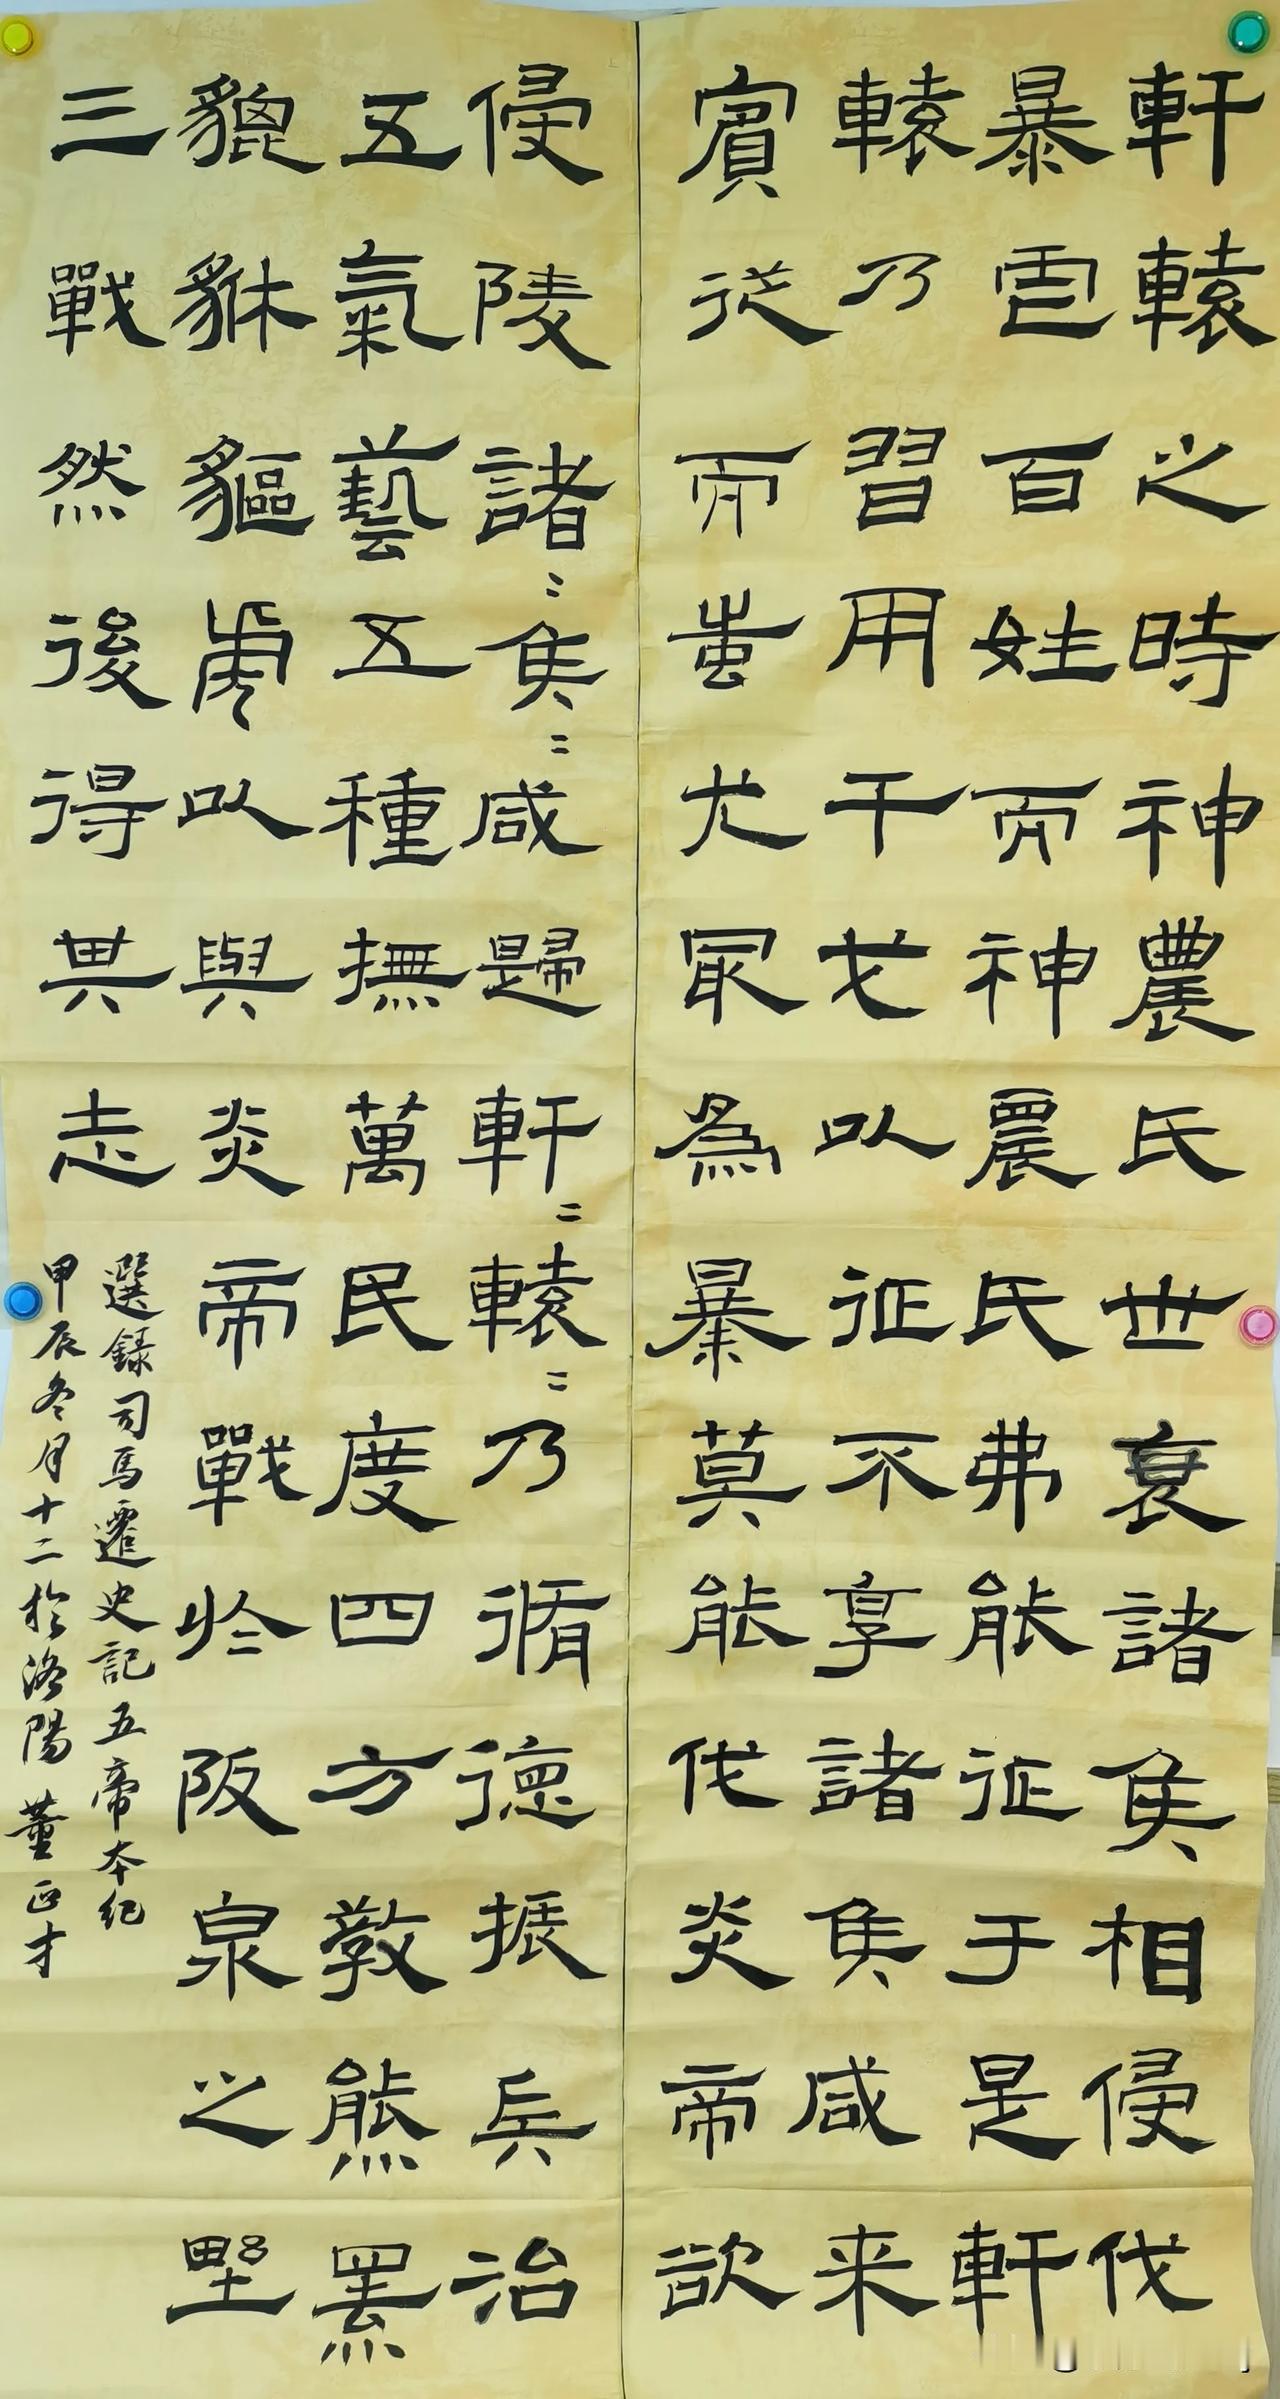 軒轅之時神農氏世衰諸侯相侵伐
暴虐百姓而神農氏弗能征于是軒
轅乃習用干戈以征不享諸侯咸来
賓従而蚩尤冣為暴莫能伐炎帝欲
侵陵諸〻侯〻咸歸軒〻轅〻乃脩德振兵治
五氣藝五種撫萬民度四方教熊羆
貔貅貙虎以與炎帝戰於阪泉之野
三戰然後得其志
選録司馬遷史記五帝本紀
甲辰冬月十二於洛陽董正才